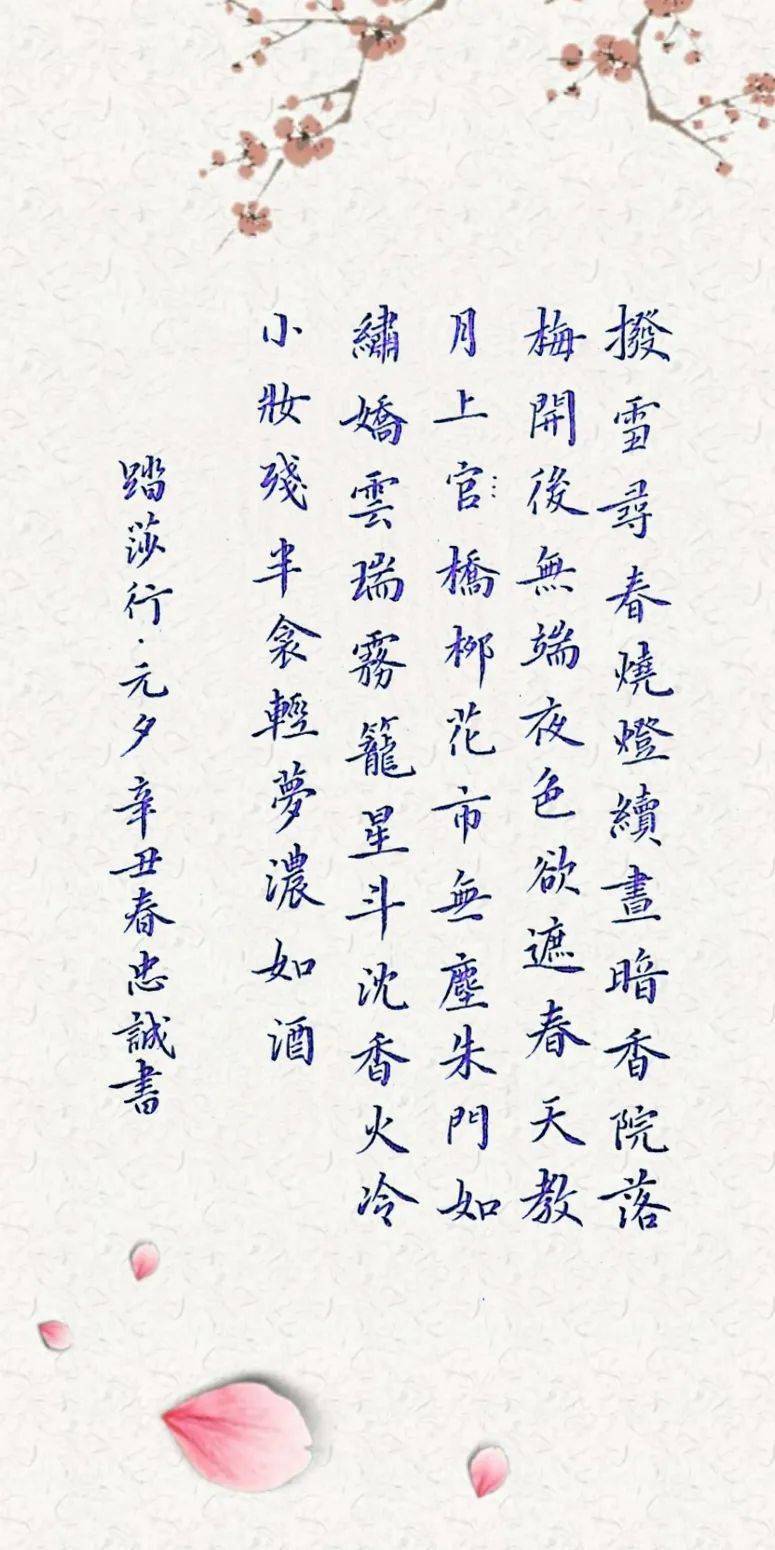 撥雪尋春燒燈續晝暗香院落
梅開後無端夜色欲遮春天教
月上官橋柳花市無塵朱門如
繡嬌雲瑞霧籠星斗沈香火冷
小妝殘半衾輕夢濃如酒
踏莎行·元夕辛丑春忠誠書